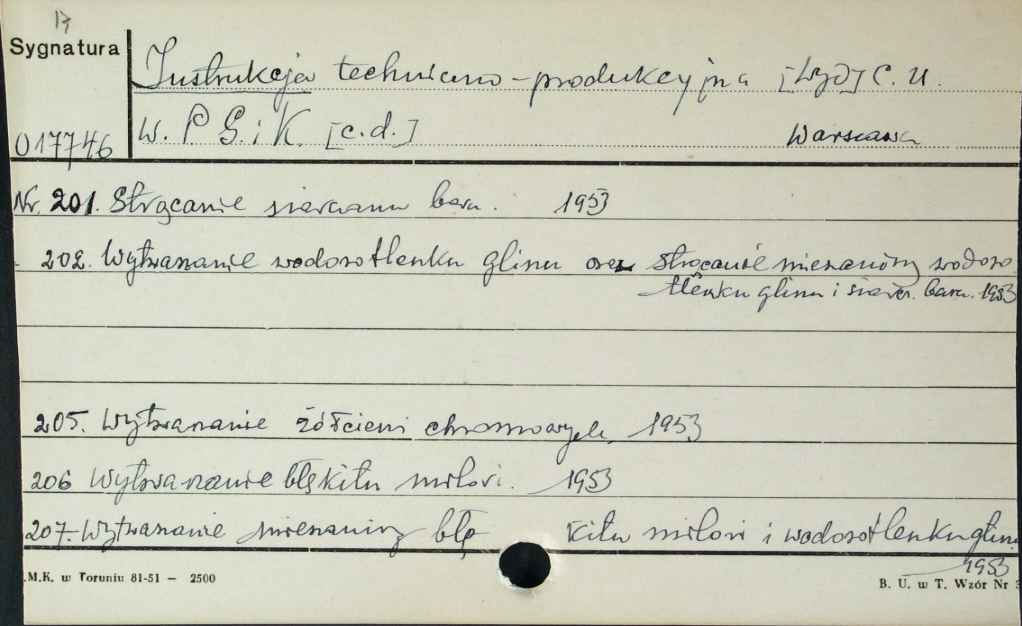 17
Sygnatura
Instrukcja techniczno-produkcyjna [Wyd] C. U.
017746
W. P G. i K. [c.d.]
Warszawa
Nr. 201. Strącanie siarczanu baru. 1953
202. Wytwarzanie wodorotlenku glinu oraz strącanie mieszaniny wodoro
tlenku glinu i siarcz. baru. 1953
205. Wytwarzanie żółcieni chromowych 1953
206 Wytwarzanie błękitu milori. 1953
207. Wytwarzanie mieszaniny błę kitu milori i wodorotlenku glinu
1953
.M.K. w Toruniu 81-51 — 2500
B. U. w T. Wzór Nr 3